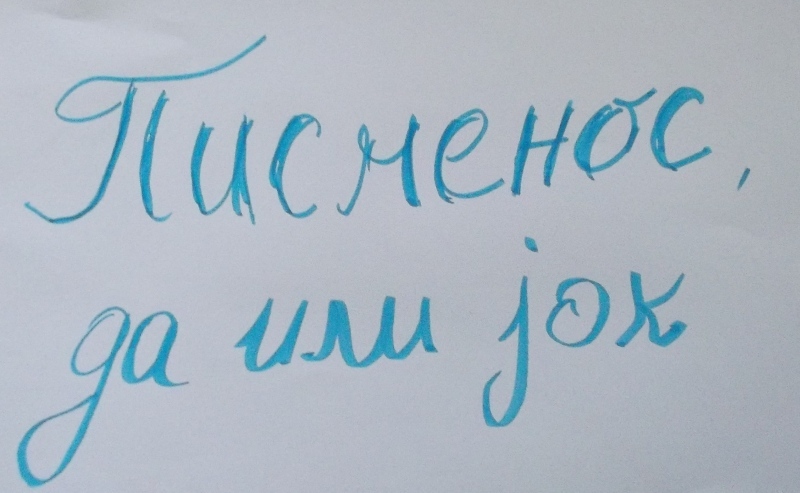 Писменос,
да или јок